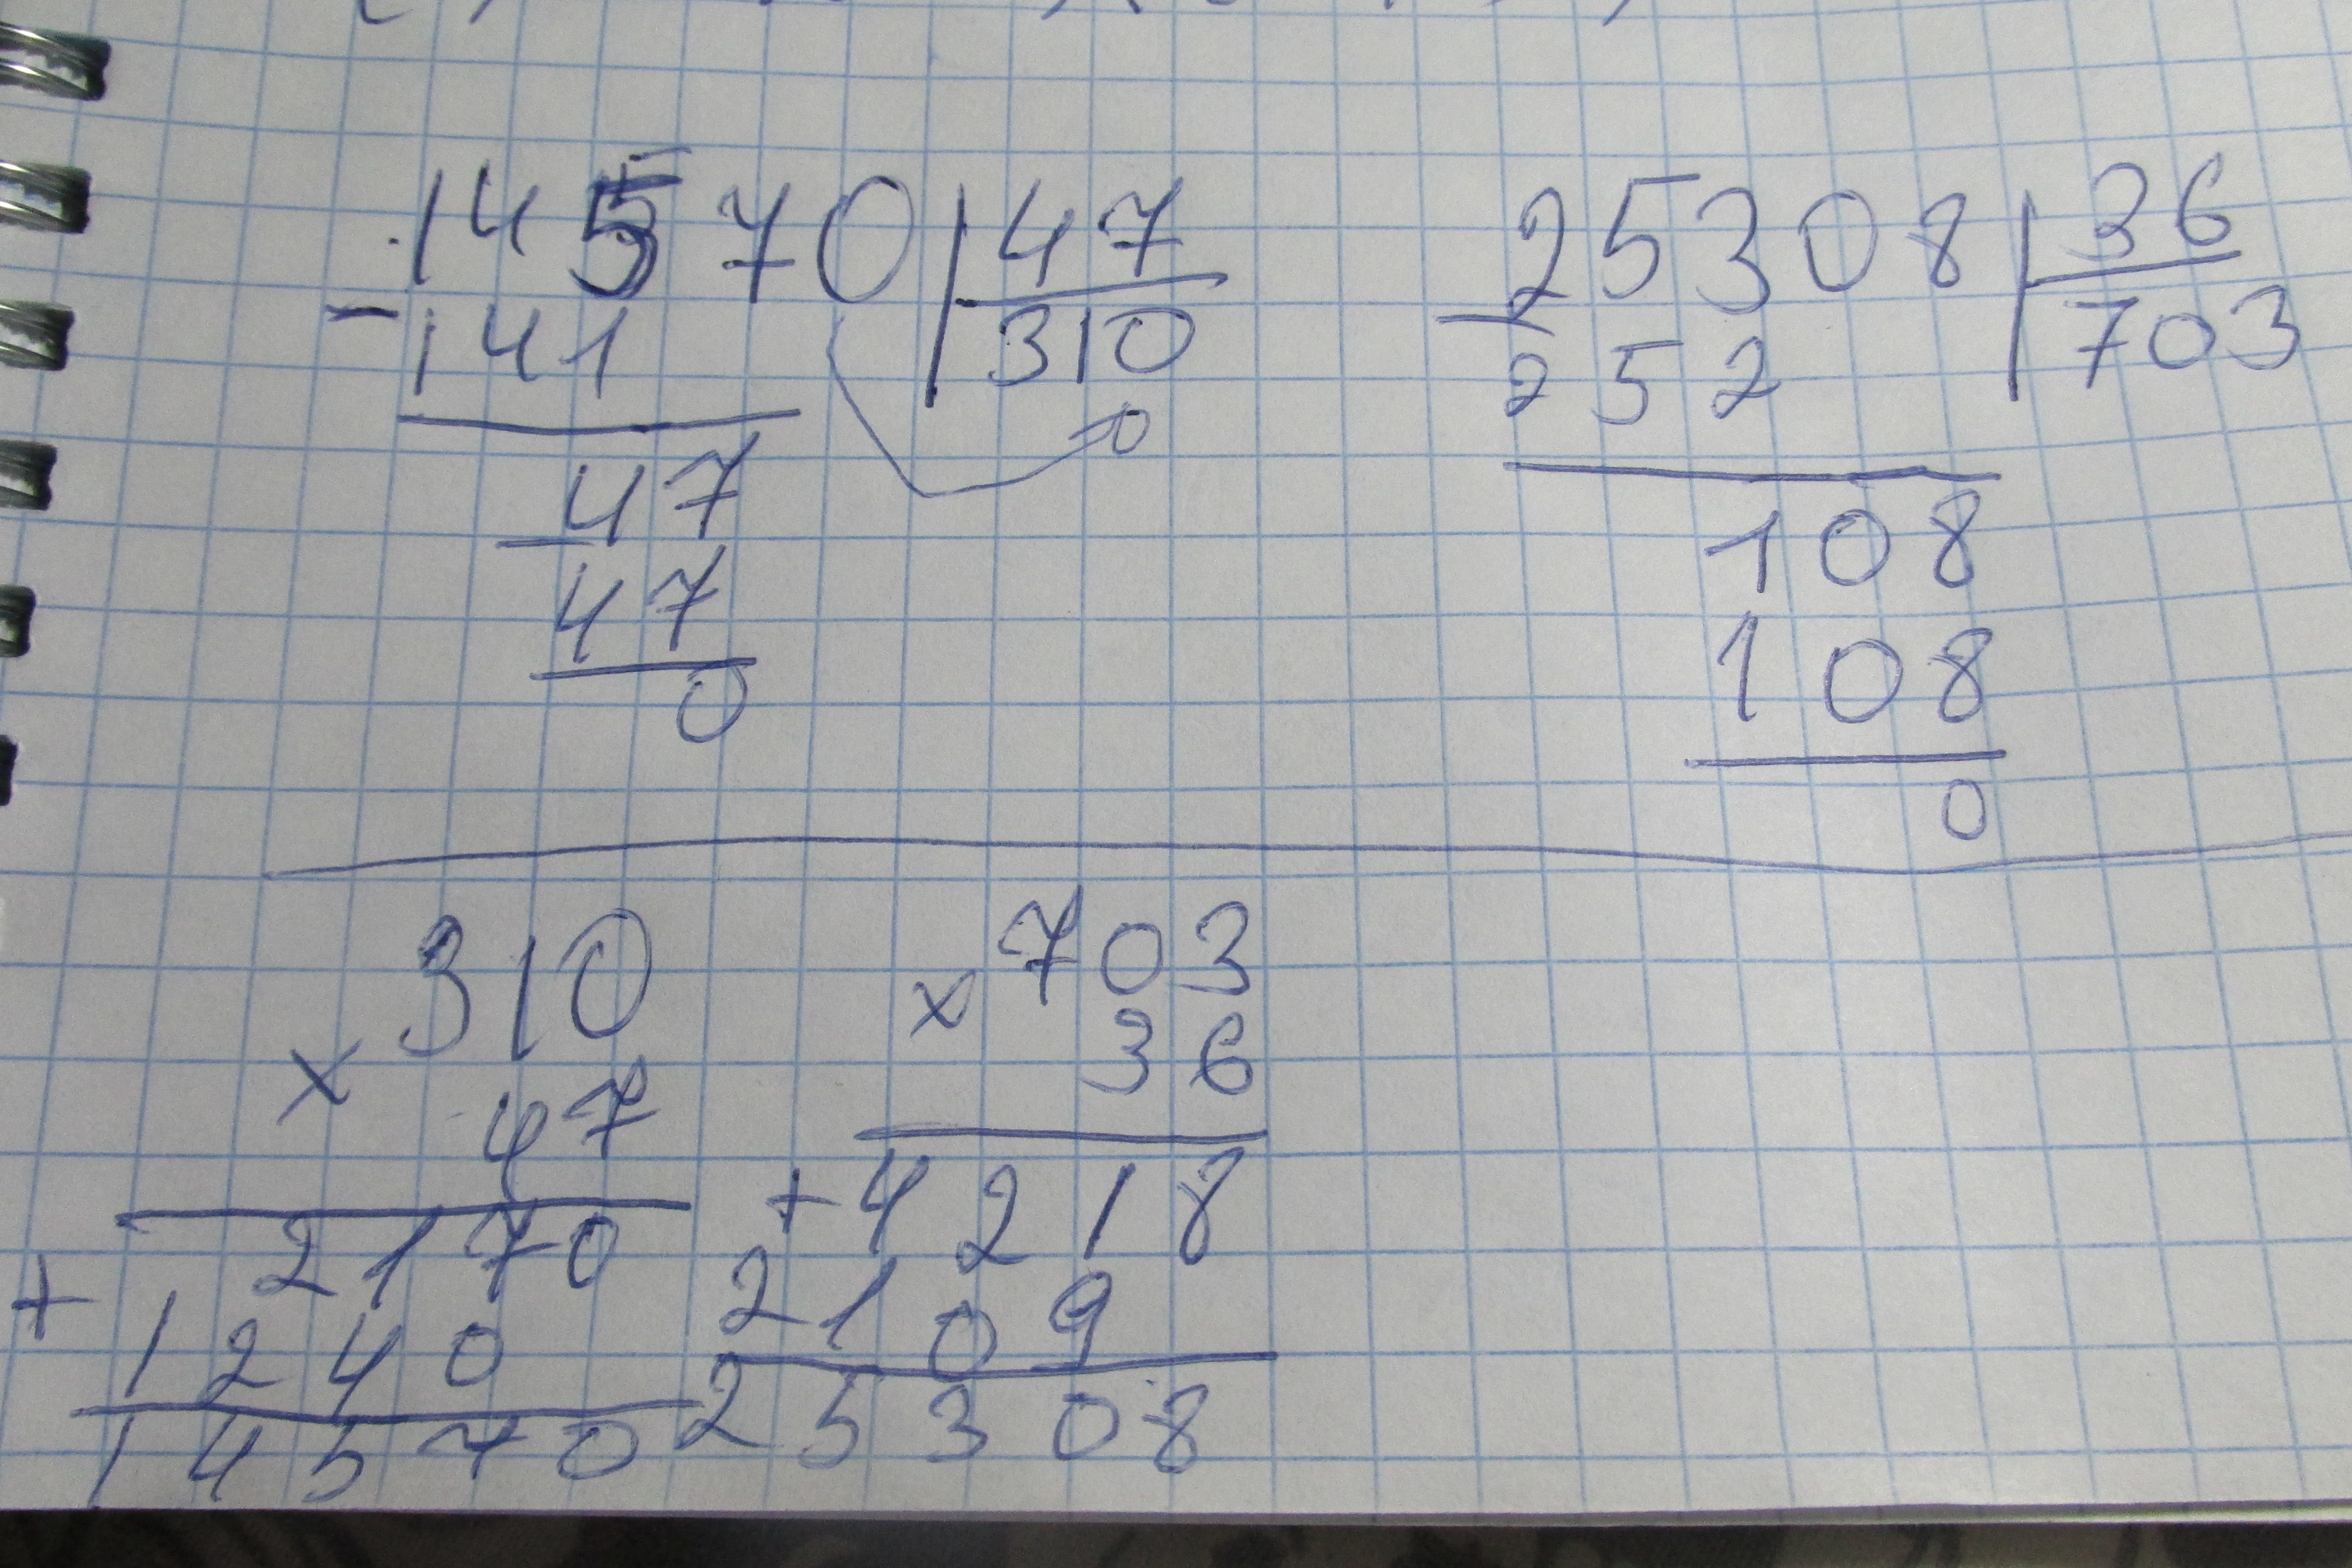 14570 47
- 141 310
0
- 47
47
0
25308 36
- 252 703
108
108
0
310
x 47
2170
+ 1240
14570
703
x 36
+ 4218
2109
25308